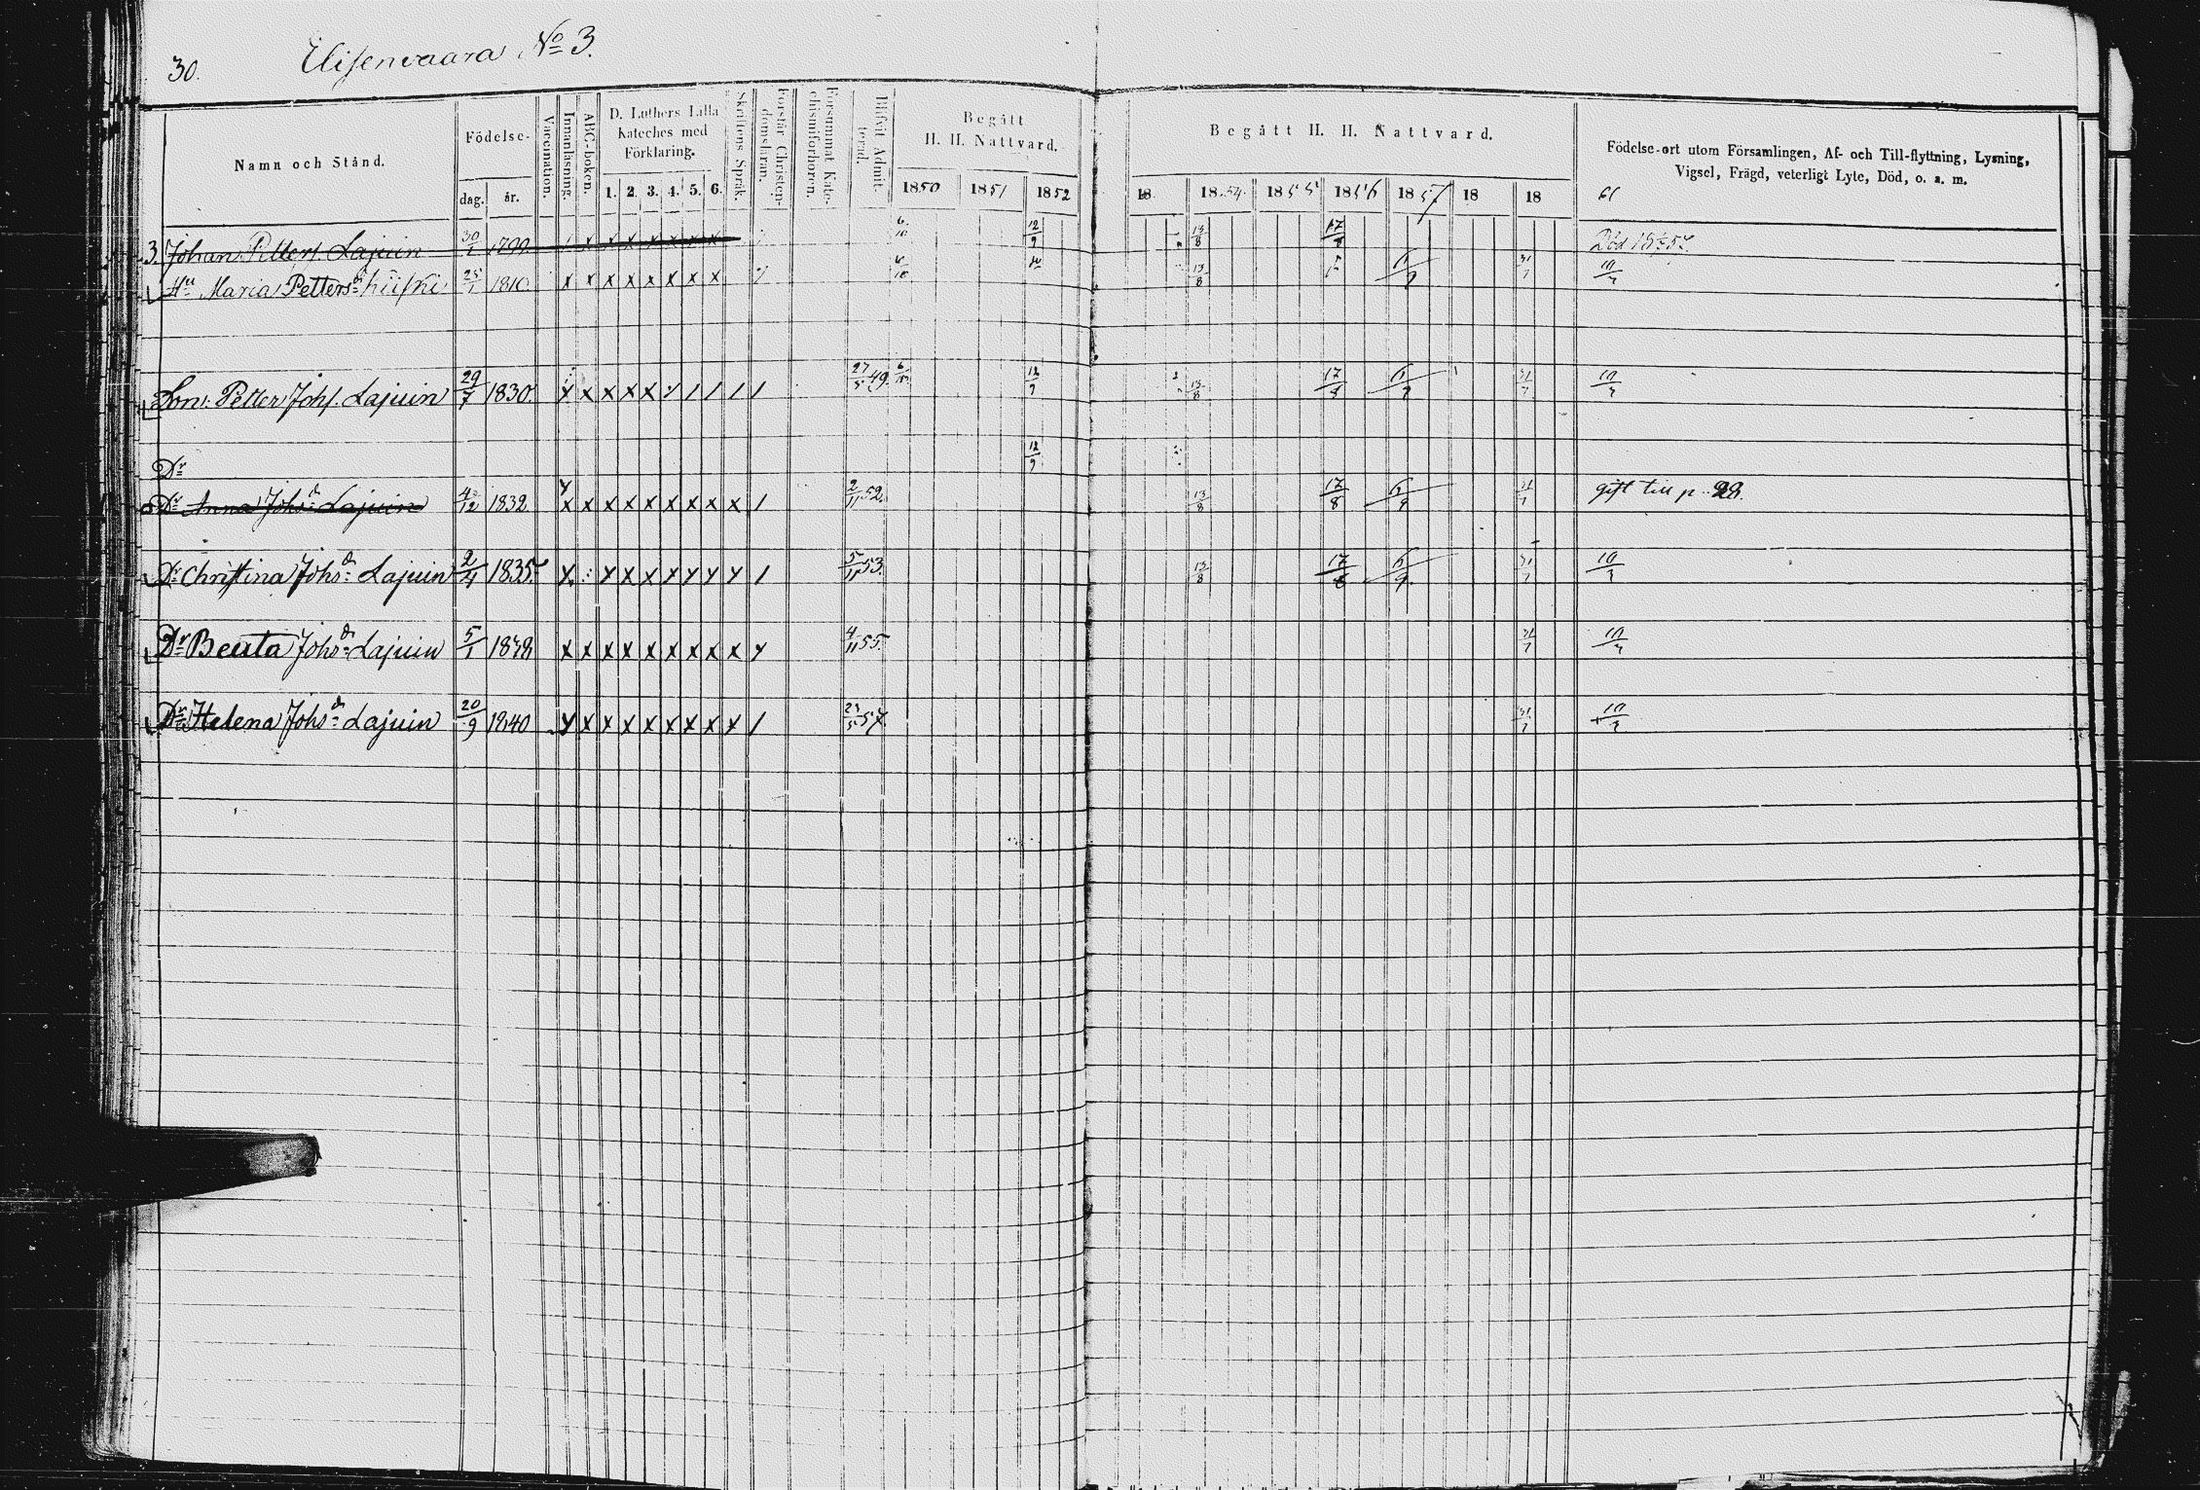 30.
Elisenvaara No 3.
Namn och Stånd.
Födelse-
dag. år.
Vaccination.
Innanläsning.
ABC-boken.
D. Luthers Lilla
Kateches med
Förklaring.
1. 2. 3. 4. 5. 6.
Skriftens Språk.
Förstår Christen-
domsläran.
Försummat Kate-
chismiförhören.
Blifvit Admit-
terad.
Begått
H. H. Nattvard.
1850 1851 1852
Begått H. H. Nattvard.
18 1854. 1855 1856 1857 18 18
Födelse-ort utom Församlingen, Af- och Till-flyttning, Lysning,
Vigsel, Frägd, veterligt Lyte, Död, o. a. m.
61
3. Johan Petterf. Lajuin 1799 x x x x x x 6/10 12/9 13/8 17/8 Död
Hu Maria Pettersdr 25/1 1810 x x x x x x x x 6/10 13/8 6/9 31/7 10/3
Son Petter Johs. Lajuin 29/7 1830 x x x x x / / / / 27/5 49. 6/10 12/9 13/8 17/8 6/9 31/7 10/3
Dr 12/9
Dr Anna Johsdr Lajuin 4/12 1832 x x x x x x x x x / 2/11 52. 13/8 17/8 6/9 31/7 gift till p. 28.
Dr Christina Johsdr Lajuin 2/4 1835 x x x x x x x x / 5/11 53. 13/8 17/8 6/9 31/7 10/3
Dr Beata Johsdr Lajuin 5/1 1838 x x x x x x x x x x 4/11 55. 31/7 10/3
Dr Helena Johsdr Lajuin 20/9 1840 x x x x x x x x x / 57. 31/7 10/3